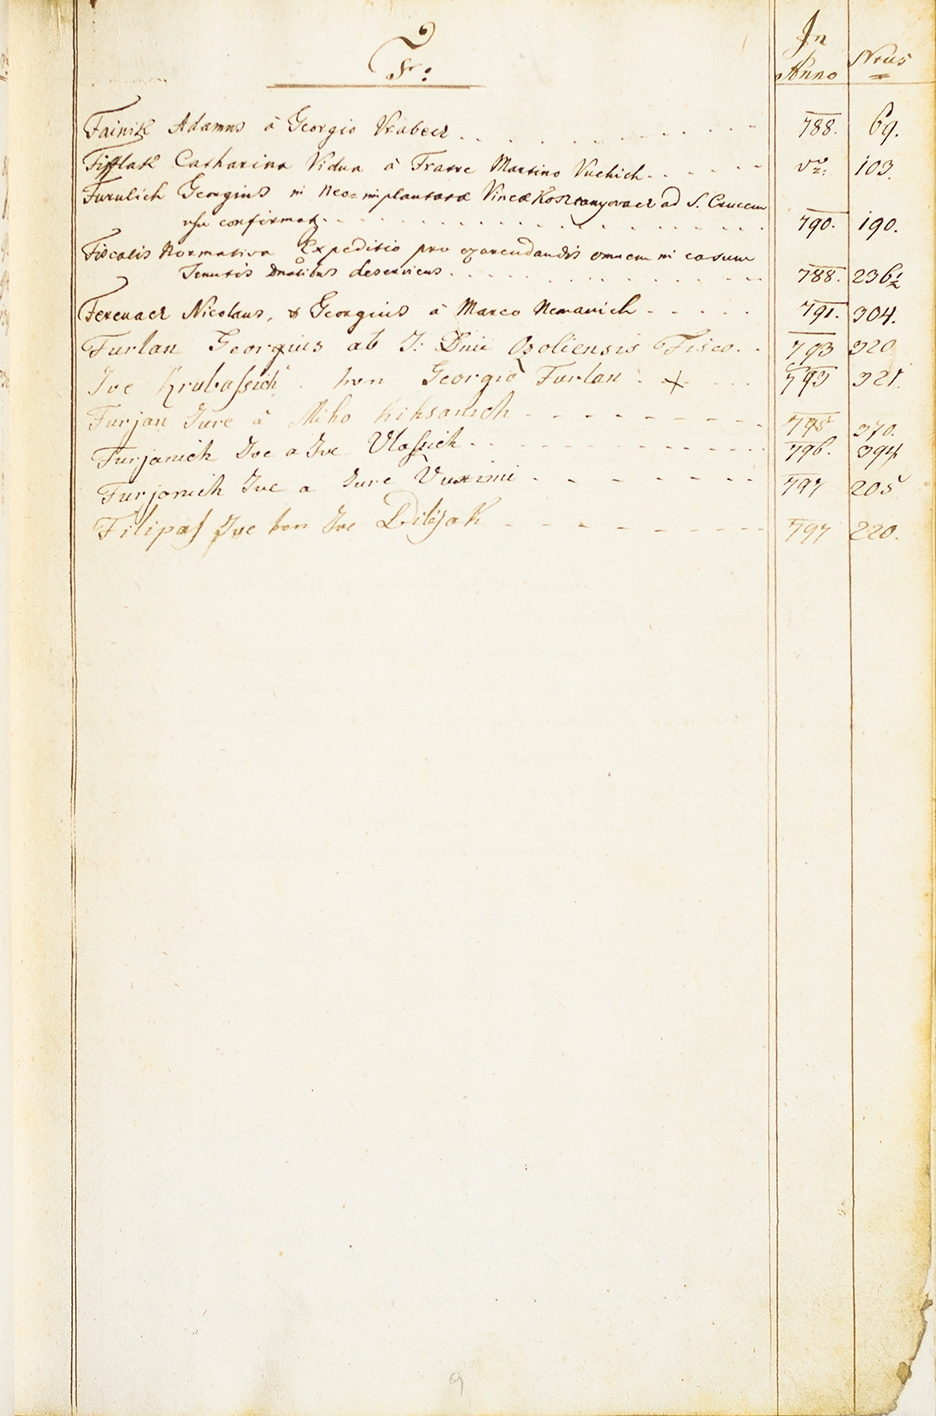 F:
In Anno
Nrus
Fainik Adamus à Georgio Vrabecz 788. 69.
Tifflak Catharina Vidua à Fratre Martino Vuchich vo: 103.
Furulich Georgius in neoe implantatæ Vineæ Kosztanyovacz ad S. Crucem
usu confirmat. 790. 190.
Fiscalis Normativa Expeditio pro exarendandis omnem in casum
Tenutis Dnalibus deserviens 788. 236½
Ferenacz Nicolaus, & Georgius à Marco Nemanich 791. 304.
Furlan Georgius ab I: Dnii Bsoliensis Fisco. 793 320.
Ive Krubassich bon Georgio Furlan. 793 321.
Furjan Jure à Miho Kihsanich 795 370.
Furjanich Ive a Ive Vlassich 796. 394
Furjanich Ive a Jure 797 205
Filipas Ive bon Ive Dilijak 797 220.
9